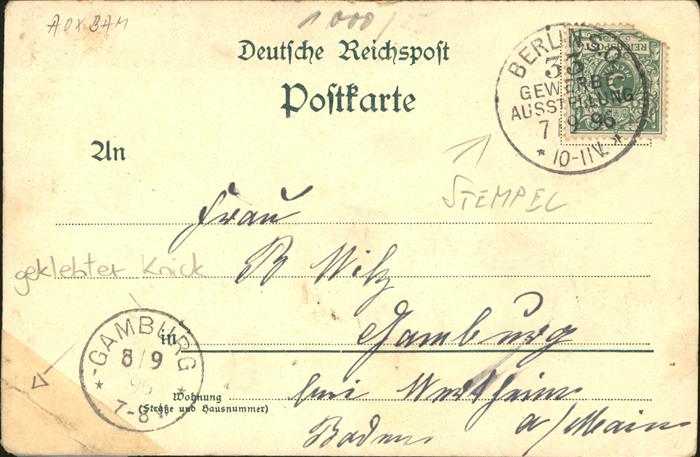 AOXBAM
1000/
Deutsche Reichspost
Postkarte
An
BERLIN S.O.
33
GEWERBE
AUSSTELLUNG
7 9 96
* 10-11V. *
REICHSPOST
5
STEMPEL
Frau
B Wilz
geklebter Knick
in Gamburg
GAMBURG
8/9
96
7-8
bei Wertheim
Wohnung
(Straße und Hausnummer)
a/Main
Baden